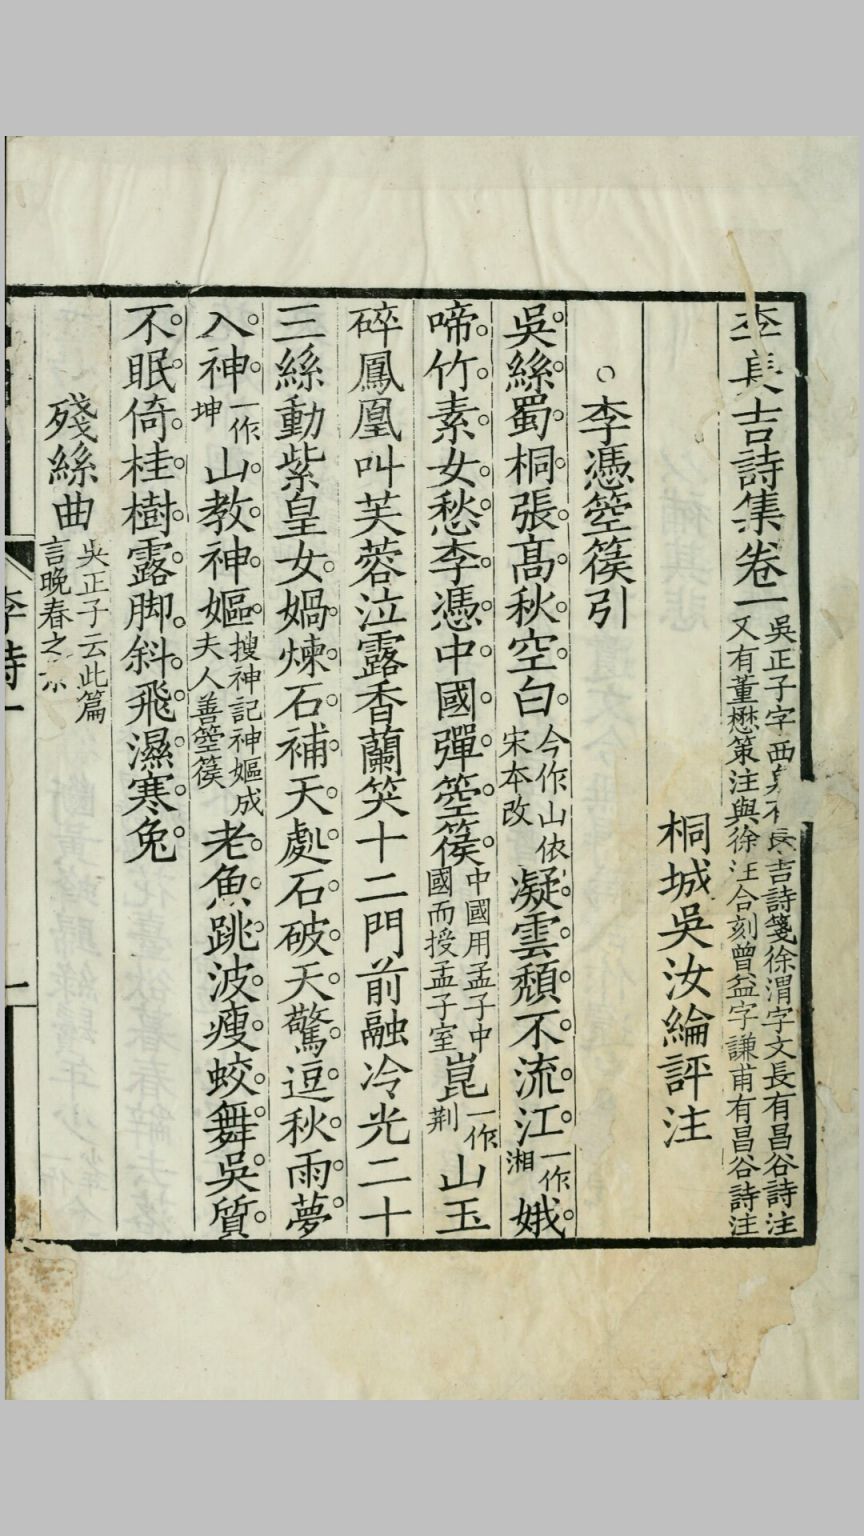 李長吉詩集卷一吳正子字西泉有長吉詩箋徐渭字文長有昌谷詩注又有董懋策注與徐注合刻曾益字謙甫有昌谷詩注
桐城吳汝綸評注
○李憑箜篌引
吳絲蜀桐張高秋空白今作山依宋本改凝雲頹不流江一作湘娥
啼竹素女愁李憑中國彈箜篌中國用孟子中國而授孟子室崑一作荆山玉
碎鳳凰叫芙蓉泣露香蘭笑十二門前融冷光二十
三絲動紫皇女媧煉石補天處石破天驚逗秋雨夢
入神一作坤山教神嫗搜神記神嫗成夫人善箜篌老魚跳波瘦蛟舞吳質
不眠倚桂樹露脚斜飛濕寒兔
殘絲曲吳正子云此篇言晚春之
李詩一
一